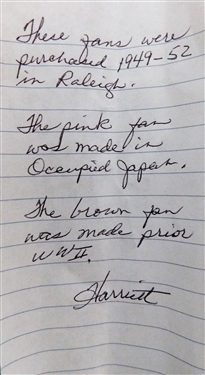 These fans were
purchased 1949-52
in Raleigh.
The pink fan
was made in
Occupied Japan.
The brown fan
was made prior
WWII.
Harriett